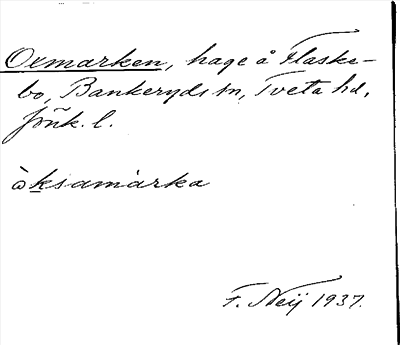 Oxmarken, hage å Flaske-
bo, Bankeryds sn, Tveta hd,
Jönk. l.
òksamàrka
F. Neij 1937.